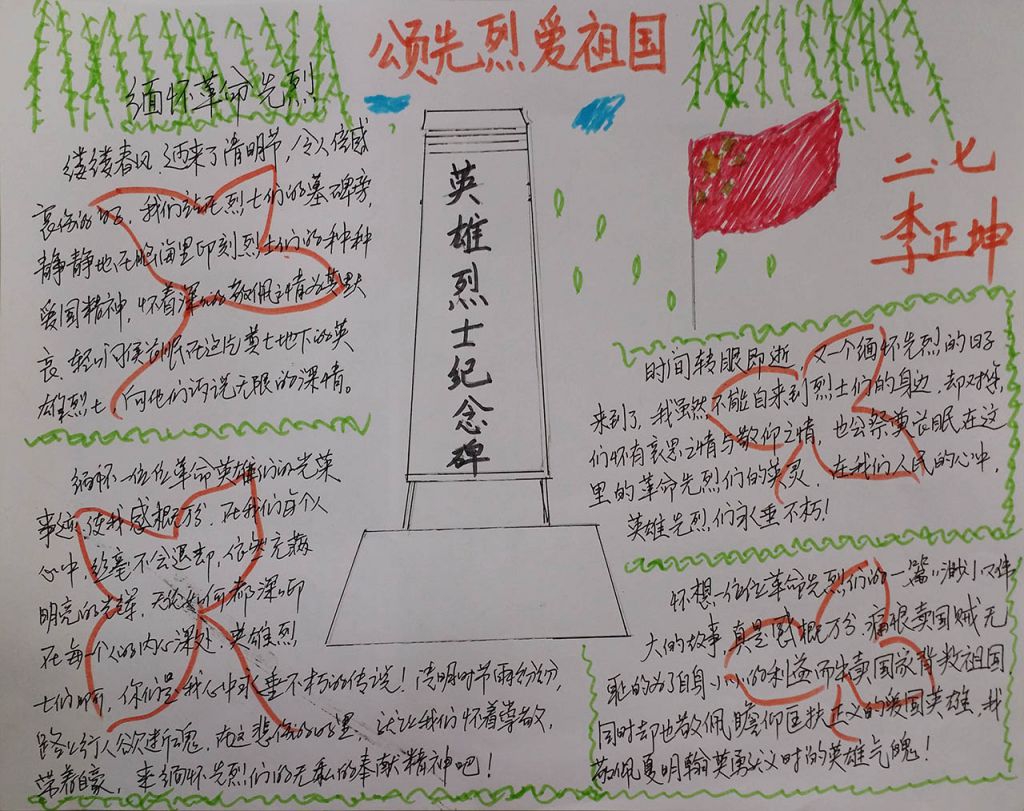 颂先烈爱祖国
二.七
李正坤
英雄烈士纪念碑
缅怀革命先烈
缕缕春风,迎来了清明节,令人倍感
哀伤的日子,我们站在烈士们的墓碑旁,
静静地在脑海里印刻烈士们的种种
爱国精神,怀着深深的敬佩之情为其默
哀,轻轻问候长眠在这片黄土地下的英
雄烈士,向他们诉说无限的深情。
缅怀一位位革命英雄们的光荣
事迹,使我感概万分,在我们每个人
心中,丝毫不会退却,依然充满
明亮的光辉,无论如何都深深印
在每一个人的内心深处,英雄烈
士们啊,你们是我心中永垂不朽的传说!清明时节雨纷纷,
路上行人欲断魂,在这悲伤的日子里,让让我们怀着尊敬,
带着自豪,来缅怀先烈们的无私的奉献精神吧!
时间转眼即逝,又一个缅怀先烈的日子
来到了,我虽然不能自来到烈士们的身边,却对
们怀有哀思之情与敬仰之情,也会祭奠长眠在这
里的革命先烈们的英灵,在我们人民的心中,
英雄先烈们永垂不朽!
怀想一位位革命先烈们的一篇篇渺小又伟
大的故事,真是感概万分,痛恨卖国贼无
耻的为了自身小小的利益而出卖国家背叛祖国,
同时却也敬佩瞻仰匡扶正义的爱国英雄,我
敬佩夏明翰英勇就义时的英雄气魄!